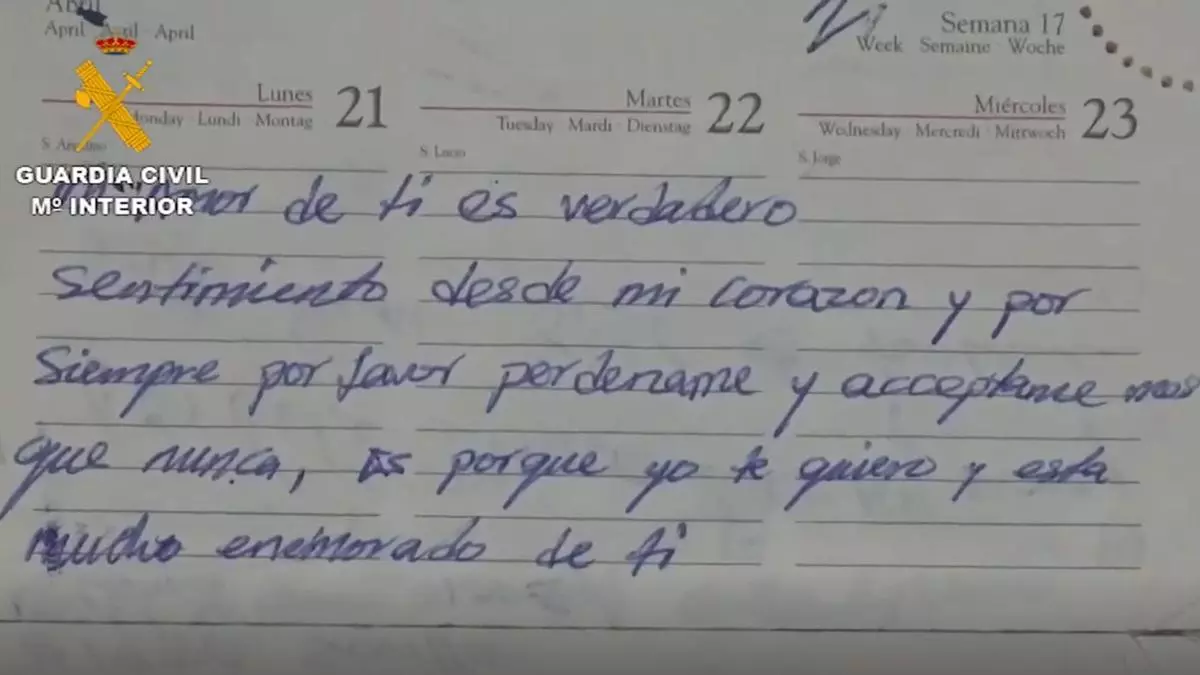 Abril
April Avril April
Semana 17
Week Semaine Woche
Lunes 21
Monday Lundi Montag
Martes 22
Tuesday Mardi Dienstag
Miércoles 23
Wednesday Mercredi Mittwoch
S. Anselmo
S. Lucio
S. Jorge
GUARDIA CIVIL
Mº INTERIOR
Amor de ti es verdadero
sentimiento desde mi corazon y por
siempre por favor perdename y acceptame mas
que nunca, es porque yo te quiero y esta
mucho enemorado de ti